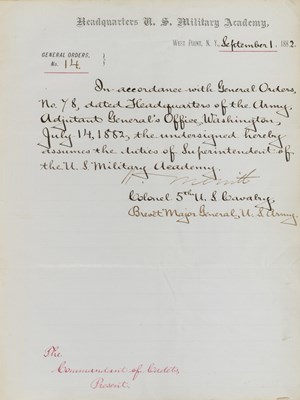 Headquarters U. S. Military Academy,
West Point, N. Y. September 1. 1882.
GENERAL ORDERS,
No. 14
In accordance with General Orders,
No. 78, dated Headquarters of the Army,
Adjutant General's Office, Washington,
July 14, 1882, the undersigned hereby
assumes the duties of Superintendent of
the U. S. Military Academy.
Merritt
Colonel 5th U. S. Cavalry,
Brevet Major General, U. S. Army.
The
Commandant of Cadets,
Present.